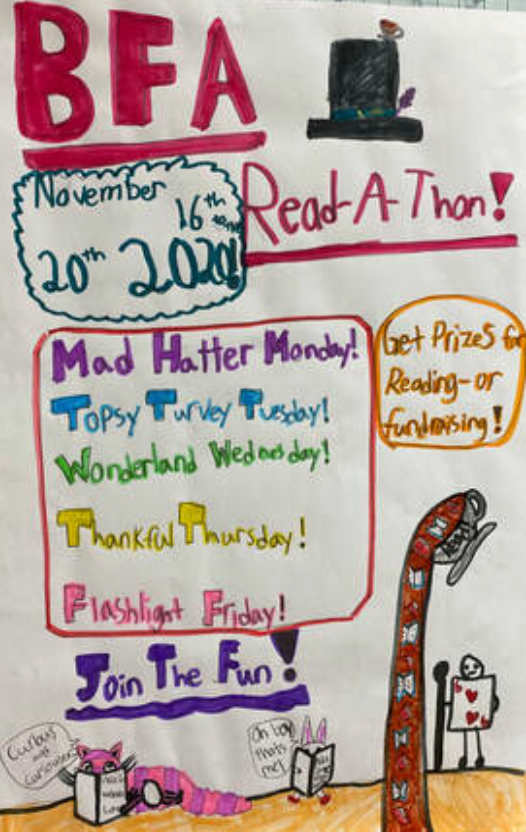 BFA
November
16th
20th 2020!
Read-A-Thon!
Mad Hatter Monday!
Topsy Turvey Tuesday!
Wonderland Wednesday!
Thankful Thursday!
Flashlight Friday!
Get Prizes for
Reading-or
fundraising!
Join The Fun!
Curious
and
Curiouser
Oh boy
thats
me!